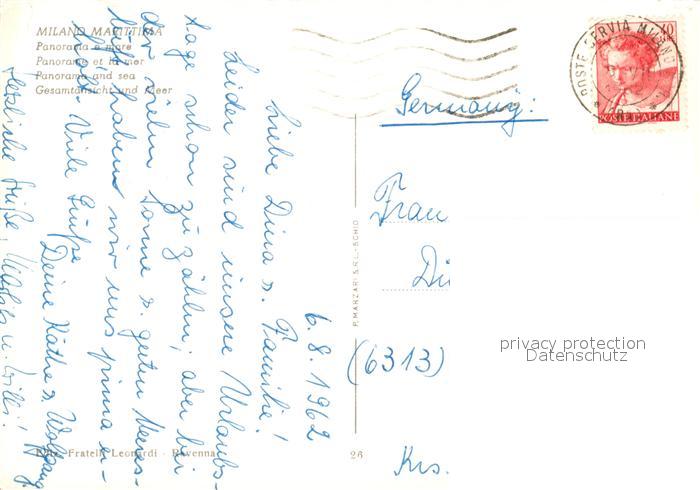 MILANO MARITTIMA
Panorama e mare
Panorama et la mer
Panorama and sea
Gesamtansicht und Meer
6.8.1962
Liebe Dina u. Familie!
Leider sind unsere Urlaubs-
tage schon zu zählen; aber bei
der vielen Sonne u. guten Meeres-
luft haben wir uns prima er-
holt. Viele Grüße
Deine Käthe u. Wolfgang
Herzliche Grüße,
u. Willi!
Ediz. Fratelli Leonardi - Ravenna
26
P. MARZARI S.R.L. - SCHIO
POSTE CERVIA MILANO
40
POSTE ITALIANE
Germany:
Frau
Di
(6313)
Krs.
privacy protection
Datenschutz